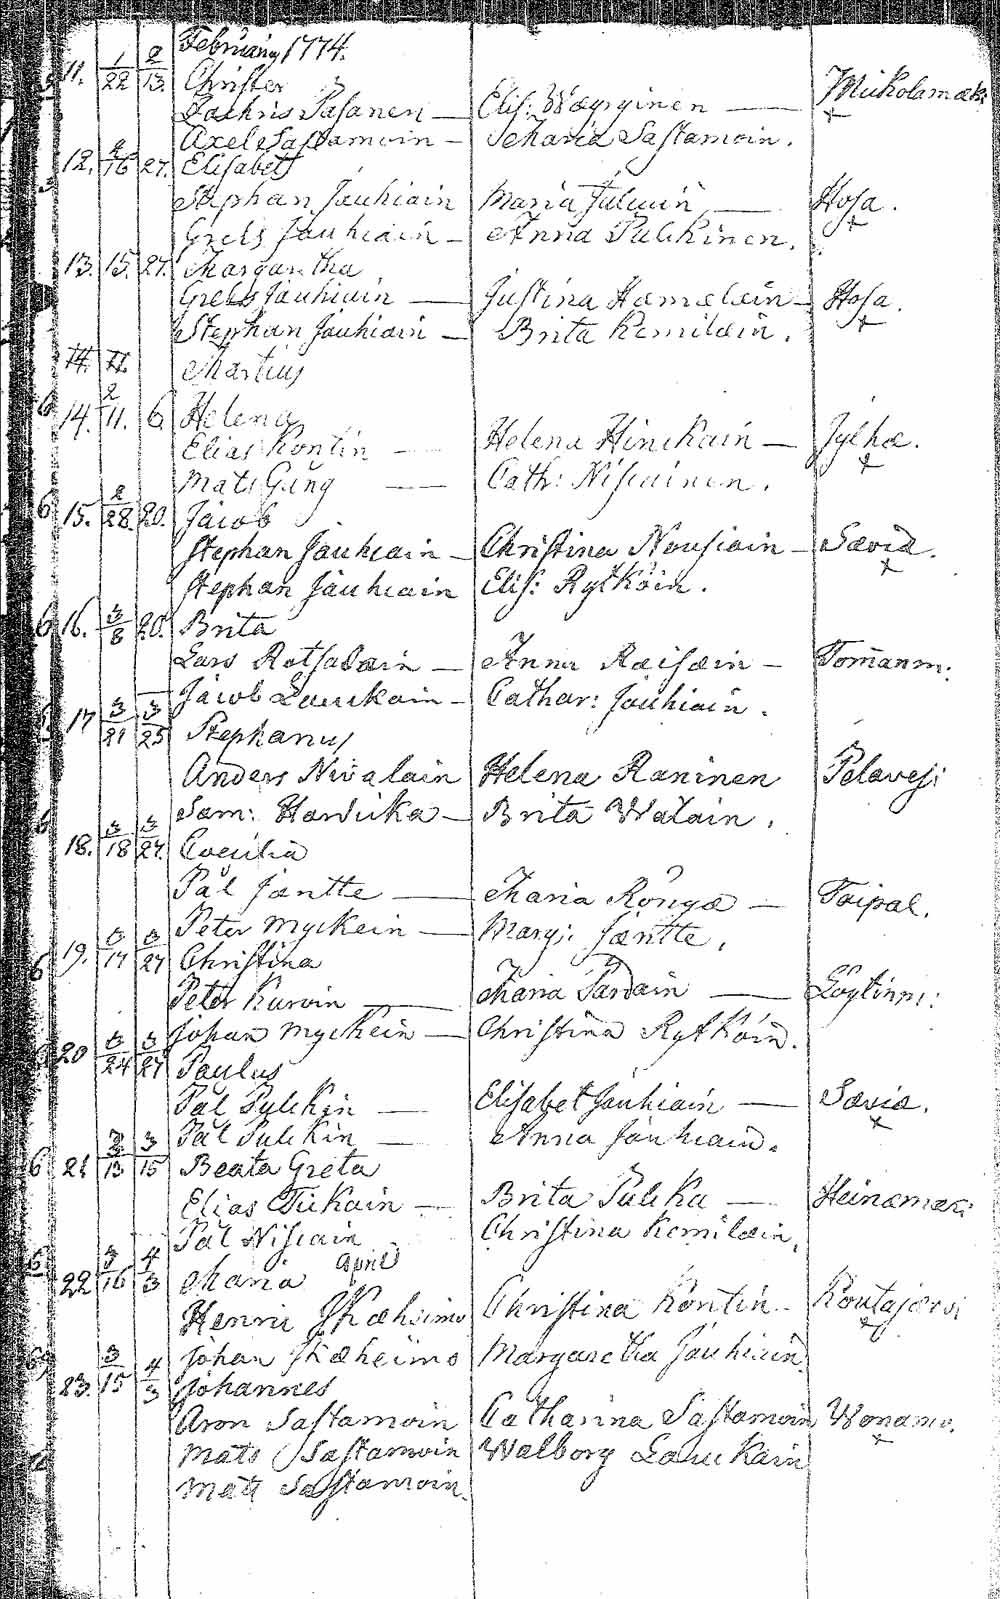 February 1774.
11. 1/22 2/13. Christer
Zachris Pasanen — Elis: Wæyrynen — Mickolamæki
Axel Sastamoin — Maria Sastamoin.
12. 2/16 27. Elisabet
Stephan Jauhiain Maria Julkuin — Hosa.
Grels Jauhiain — Anna Pulckinen.
13. 15. 27. Margaretha
Grels Jauhiain — Justina Hæmælæin — Hosa.
Stephan Jauhiain — Brita Kemilæin.
Martius
14. 2/11. 6. Helena
Elias Kontin — Helena Hinckain — Jylhæ.
Mats Gång — Cath: Niscainen.
15. 2/28. 20. Jacob
Stephan Jauhiain — Christina Nousiain — Sævia.
Stephan Jauhiain Elis: Rytköin.
16. 3/8 20. Brita
Lars Rotsalain — Anna Ræisæin — Tommanm:
Jacob Lauckain — Cathar: Jauhiain.
17 3/21 3/25 Stephanus
Anders Nivalain Helena Raninen Pelavesi
Sam: Hawuka — Brita Walain.
18. 3/18 3/27. Coecilia
Pål Jæntte — Maria Röngæ — Taipal.
Peter Myckein — Marg: Jæntte.
19. 3/17 3/27 Christina
Peter Kurvin — Maria Pardain — Löytinm:
Johan Myckein — Christina Rytköin.
20 3/24 3/27 Paulus
Pål Pulckin — Elisabet Jauhiain — Sævia.
Pål Pulckin — Anna Jauhiain.
21 3/13 3/15 Beata Greta
Elias Tickain — Brita Pulcka — Heinämæki
Pål Niscain Christina Kemilæin.
April
22 3/16 4/3 Maria
Henric Skæheimo Christina Kontin — Koutajærvi
Johan Skæheimo Margaretha Jauhiain.
23. 3/15 4/3 Johannes
Aron Sastamoin Catharina Sastamoin Wonamo.
Mats Sastamoin Walborg Lauckain
Matts Sastamoin.